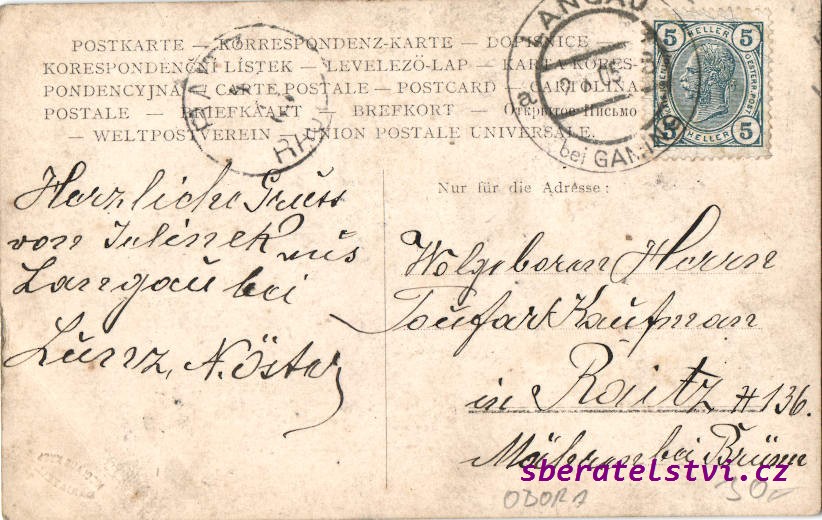 POSTKARTE — KORRESPONDENZ-KARTE — DOPISNICE —
KORESPONDENČNÍ LÍSTEK — LEVELEZÖ-LAP — KARTA KORES-
PONDENCYJNA — CARTE POSTALE — POSTCARD — CARTOLINA
POSTALE — BRIEFKAART — BREFKORT — Открытое Письмо
— WELTPOSTVEREIN — UNION POSTALE UNIVERSALE.
LANGAU
a
bei GAMING
5 HELLER 5
5 HELLER 5
Nur für die Adresse:
Herzliche Gruss
von Jelinek aus
Langau bei
Lunz, N. Öster
Wolgeboren Herrn
Toufar Kaufman
in Raitz # 136.
Mähren bei Brünn
sberatelstvi.cz
ODORA
30